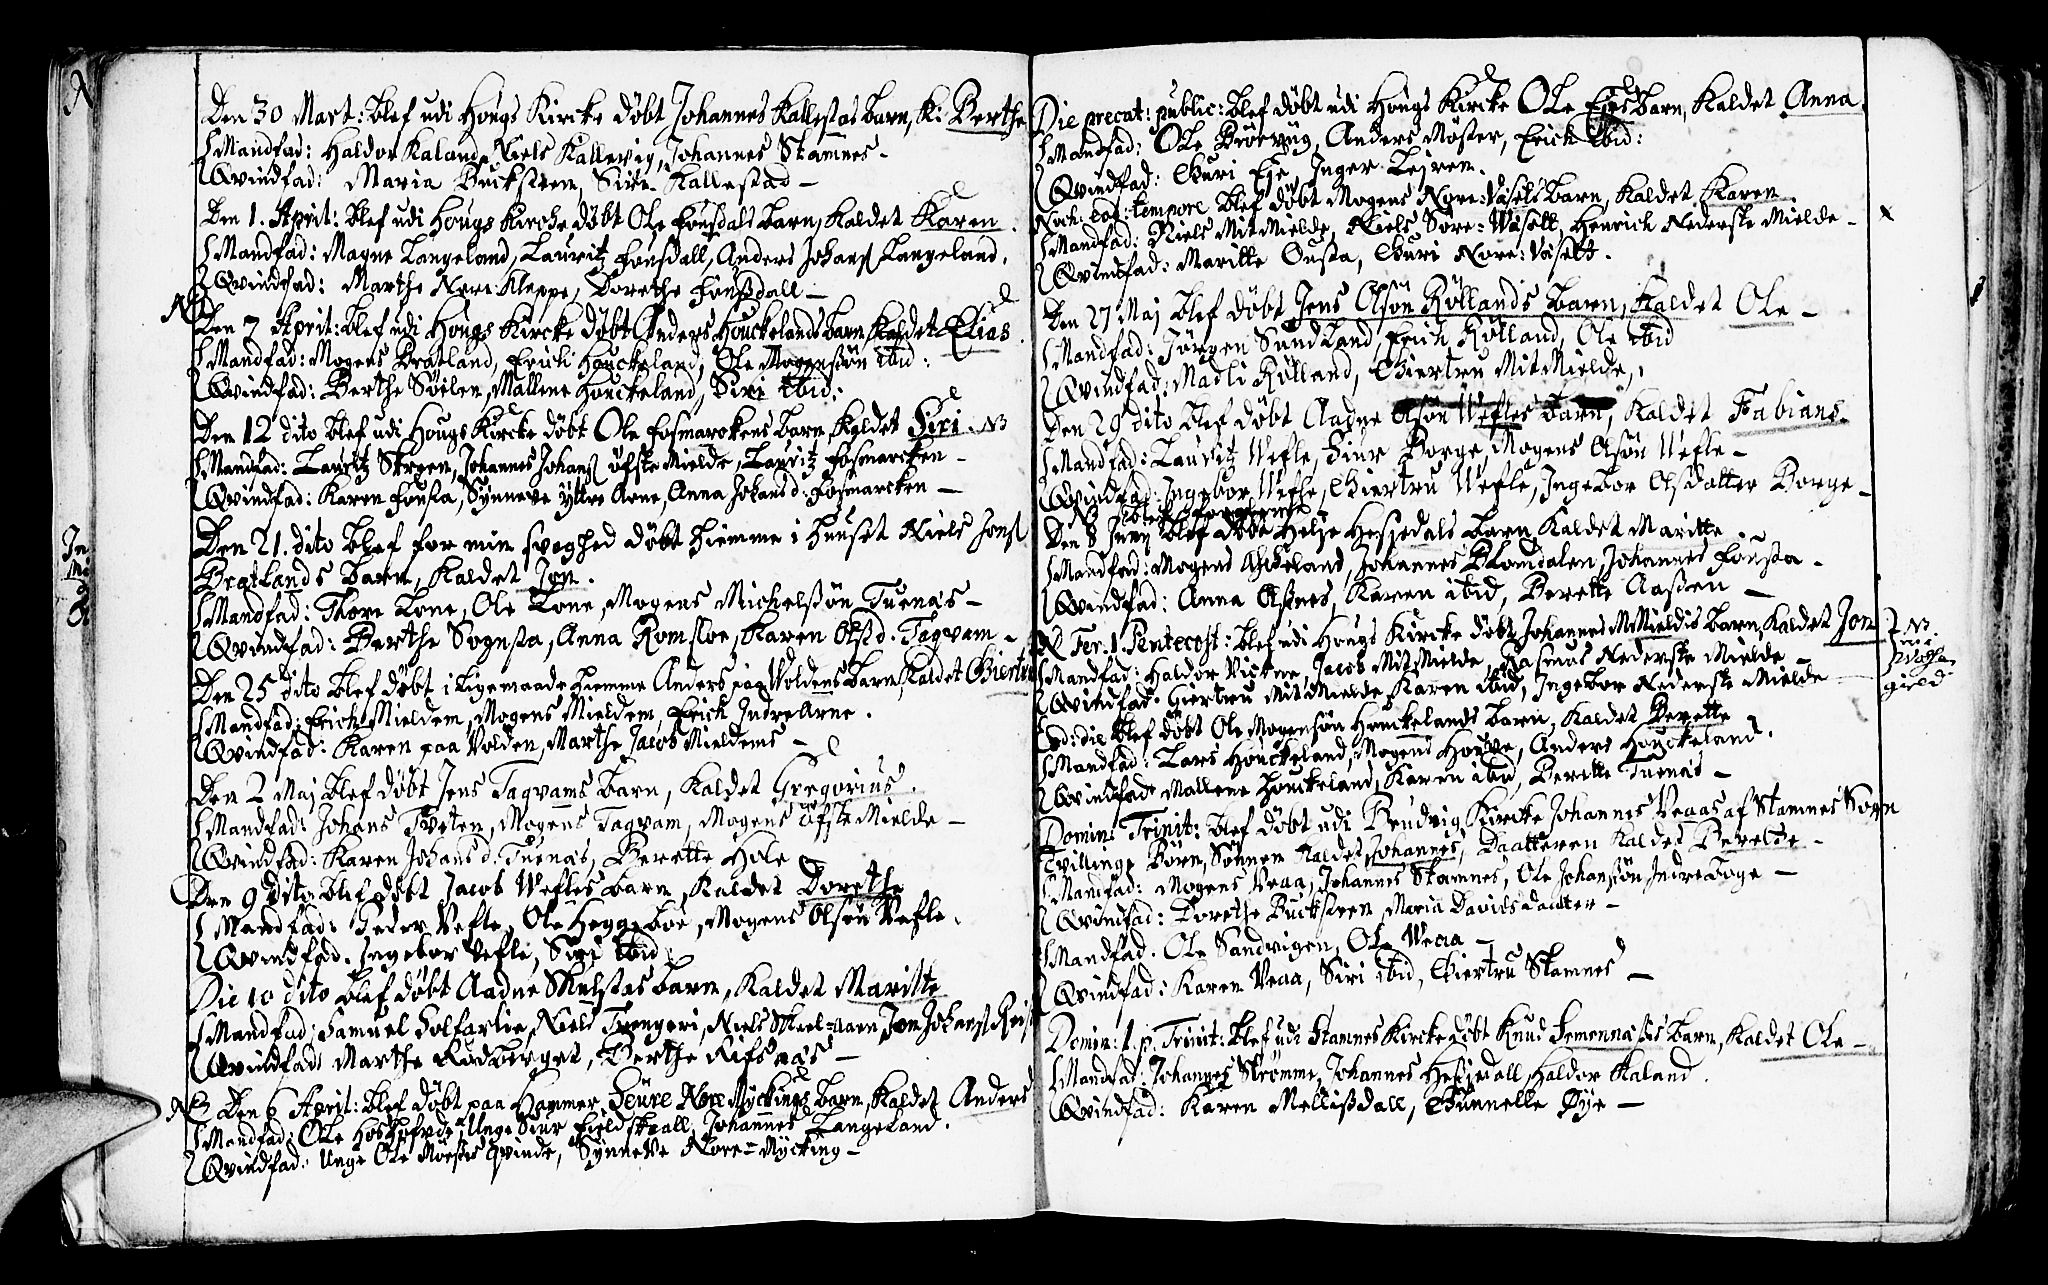 Den 30 Mart: blef udi Hougs Kircke döbt Johannes Kallestas barn, k: Berthe
Mandfad: Haldor Kaland, Niels Kallevig, Johannes Stamnes -
Qvindfad: Maria Bucksteen, Siri Kallestad -
Den 1. April: blef udi Hougs Kircke döbt Ole Fonsdals barn, kaldet Karen.
Mandfad: Magne Langeland, Lauritz Fonsdall, Anders Johans Langeland.
Qvindfad: Marthe Nore Kleppe, Dorethe Fonsdall -
NB
Den 7 April: blef udi Hougs Kircke döbt Anders Houckelands barn, kaldet Elias.
Mandfad: Mogens Bratland, Erich Houckeland, Ole Mogensön ibid:
Qvindfad: Berthe Söilen, Mallene Houckeland, Siri ibid:
Den 12 dito blef udi Hougs Kircke döbt Ole Fosmarckens barn, kaldet Siri. NB
Mandfad: Lauritz Skreen, Johannes Johans öfste Mielde, Lauritz Fosmarcken -
Qvindfad: Karen Fonsta, Synneve yttre Arne, Anna Johansd: Fosmarcken -
Den 21. dito blef for min svaghed döbt hiemme i huset Niels Jons
Bratlands barn, kaldet Jon.
Mandfad: Thore Lone, Ole Lone, Mogens Michelsön Tuenäs -
Qvindfad: Berthe Sognsta, Anna Romsloe, Karen Olsd. Tagvam -
Den 25 dito blef döbt i ligemaade hiemme Anders paa Woldens barn, kaldet Giertru
Mandfad: Erich Mieldem, Mogens Mieldem, Erich Indre Arne.
Qvindfad: Karen paa Volden, Marthe Jacob Mieldems -
Den 2 Maj blef döbt Jens Tagvams barn, kaldet Gregorius.
Mandfad: Johans Tveten, Mogens Tagvam, Mogens öfste Mielde -
Qvindfad: Karen Johans d. Tuenäs, Berette Hole
Den 9 dito blef döbt Jacob Wefles barn, kaldet Dorethe
Mandfad: Peder Vefle, Ole Heggeboe, Mogens Olsön Vefle.
Qvindfad. Ingebor Vefle, Siri ibid
Die 10 dito blef döbt Aadne barn, kaldet Maritte
Mandfad: Samuel Solfarlie, Niels Trengeri, Niels Jon Johans
Qvindfad: Marthe Rödberget, Berthe Rifsnäs -
NB Den 6 April: blef döbt paa Hammer Siure Nore Myckings barn, kaldet Anders
Mandfad: Ole Unge Siur Fieldskaall, Johannes Langeland.
Qvindfad: Unge Ole qvinde, Synneve Nore-Mycking -
Die precat: public: blef döbt udi Hougs Kircke Ole Eies barn, kaldet Anna.
Mandfad: Ole Brörvig, Anders Möster, Erich ibid:
Qvindfad: Guri Eje, Inger Lejren.
Noch eod: tempore blef döbt Mogens Nore-Väsels barn, kaldet Karen.
Mandfad: Niels MitMielde, Niels Söre-Wäsell, Henrich Nederste Mielde -
Qvindfad: Maritte Ousta, Guri Nore-Väsell.
Den 27 Maj blef döbt Jens Olsön Röllands barn, kaldet Ole -
Mandfad: Jörgen Sundland, Erich Rölland, Ole ibid
Qvindfad: Madli Rölland, Giertru MitMielde,
Den 29 dito blef döbt Aadne Olsön Wefles barn, kaldet Fabians.
Mandfad: Lauritz Wefle, Siur Borge, Mogens Olsön Wefle -
Qvindfad: Ingebor Wefle, Giertru Wefle, Ingebor Olsdatter Borge -
Den 8 blef döbt Helje Hesjedals barn, kaldet Maritte
Mandfad: Mogens, Johannes Blomdalen, Johannes Fonsta -
Qvindfad: Anna Olsnes, Karen ibid, Berette Aassen -
Fer. 1. Pentecost: blef udi Hougs Kircke döbt Johannes M:Mieldis barn, kaldet Jon
Mandfad: Haldor, Jacob MitMielde, Rasmus Nederste Mielde -
Qvindfad: Giertru MitMielde, Karen ibid, Ingebor Nederste Mielde
NB
Eod: die blef döbt Ole Mogensön Houckelands barn, kaldet Berette
Mandfad: Lars Houckeland, Mogens Houve, Anders Houckeland.
Qvindfad: Mallene Houckeland, Karen ibid, Berette Tuenäs -
Domin: Trinit: blef döbt udi Brudvig Kircke Johannes Veaas af Stamnes Sogn
Tvillinge Börn, Sönnen kaldet Johannes, Daatteren kaldet Berette -
Mandfad: Mogens Veaa, Johannes Stamnes, Ole Johansön IndreBoge -
Qvindfad: Dorethe Bucksteen, Maria Davids daatter -
Mandfad. Ole Sandvigen, Ole Weaa -
Qvindfad: Karen Veaa, Siri ibid, Giertru Stamnes -
Domin: 1. p. Trinit: blef udi Stamnes Kircke döbt Knud barn, kaldet Ole -
Mandfad: Johannes Strömme, Johannes Hesjedall, Haldor Kaland.
Qvindfad: Karen Mellisdall, Gunnelle Øye -